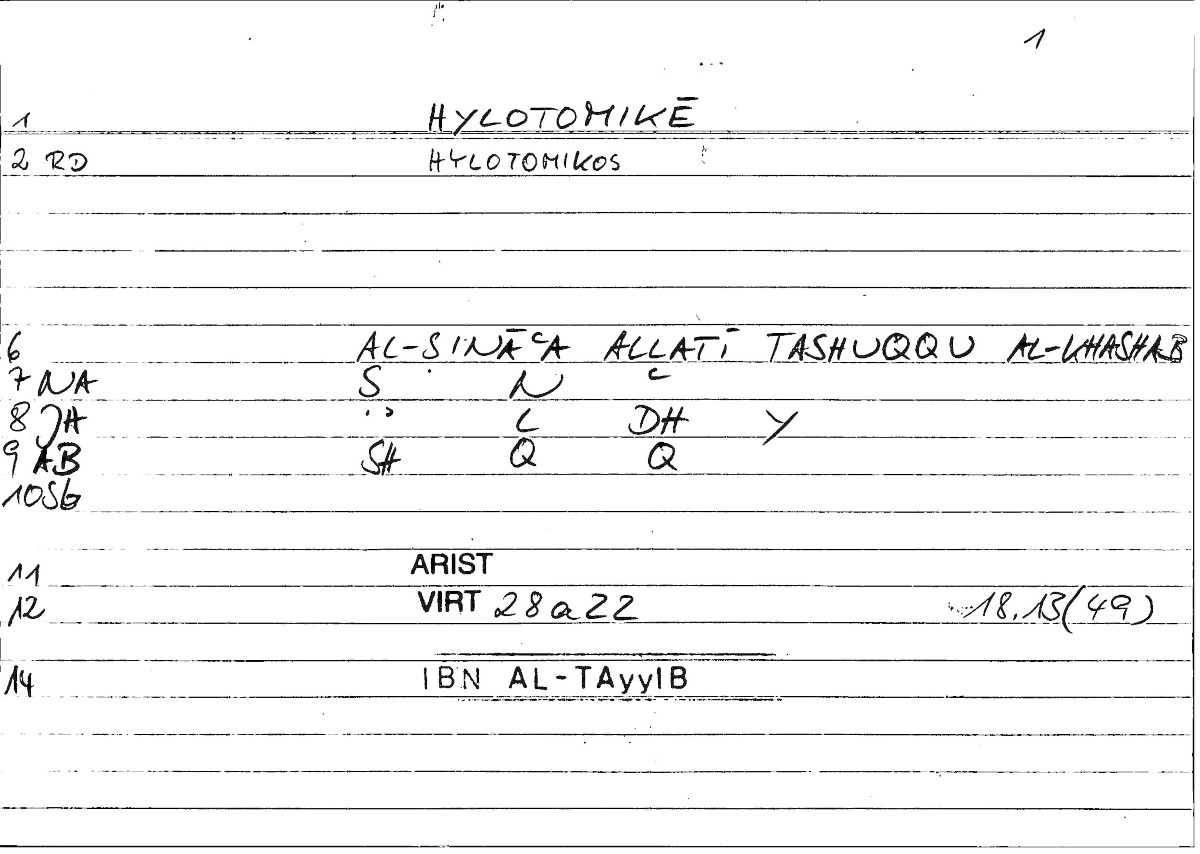 1
1 HYLOTOMIKĒ
2 RD HYLOTOMIKOS
6 AL-ṢINĀʿA ALLATĪ TASHUQQU AL-KHASHAB
7 NA Ṣ N ʿ
8 JH L DH Y
9 AB SH Q Q
10 SG
11 ARIST
12 VIRT 28a22 18.13(49)
14 IBN AL-TAyyIB